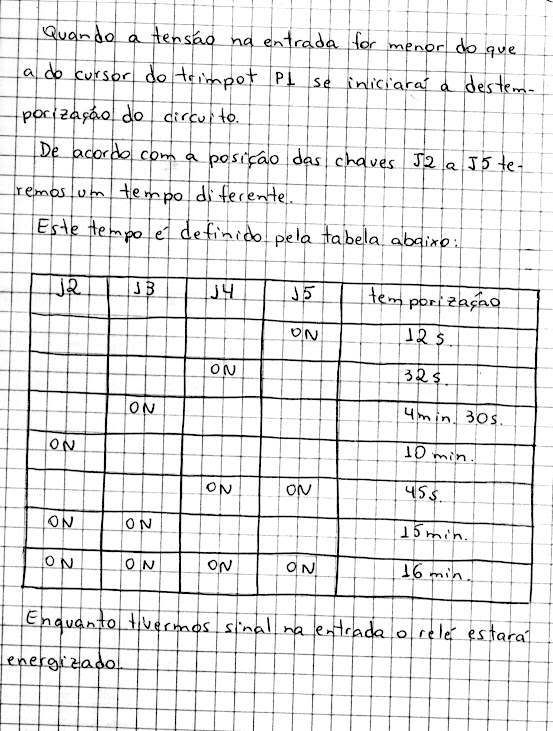 Quando a tensão na entrada for menor do que
a do cursor do trimpot P1 se iniciará a destem-
porização do circuito.
De acordo com a posição das chaves J2 a J5 te-
remos um tempo diferente.
Este tempo é definido pela tabela abaixo:
J2 J3 J4 J5 temporização
ON 12 s.
ON 32 s.
ON 4 min. 30 s.
ON 10 min.
ON ON 45 s.
ON ON 15 min.
ON ON ON ON 16 min.
Enquanto tivermos sinal na entrada o relé estará
energizado.